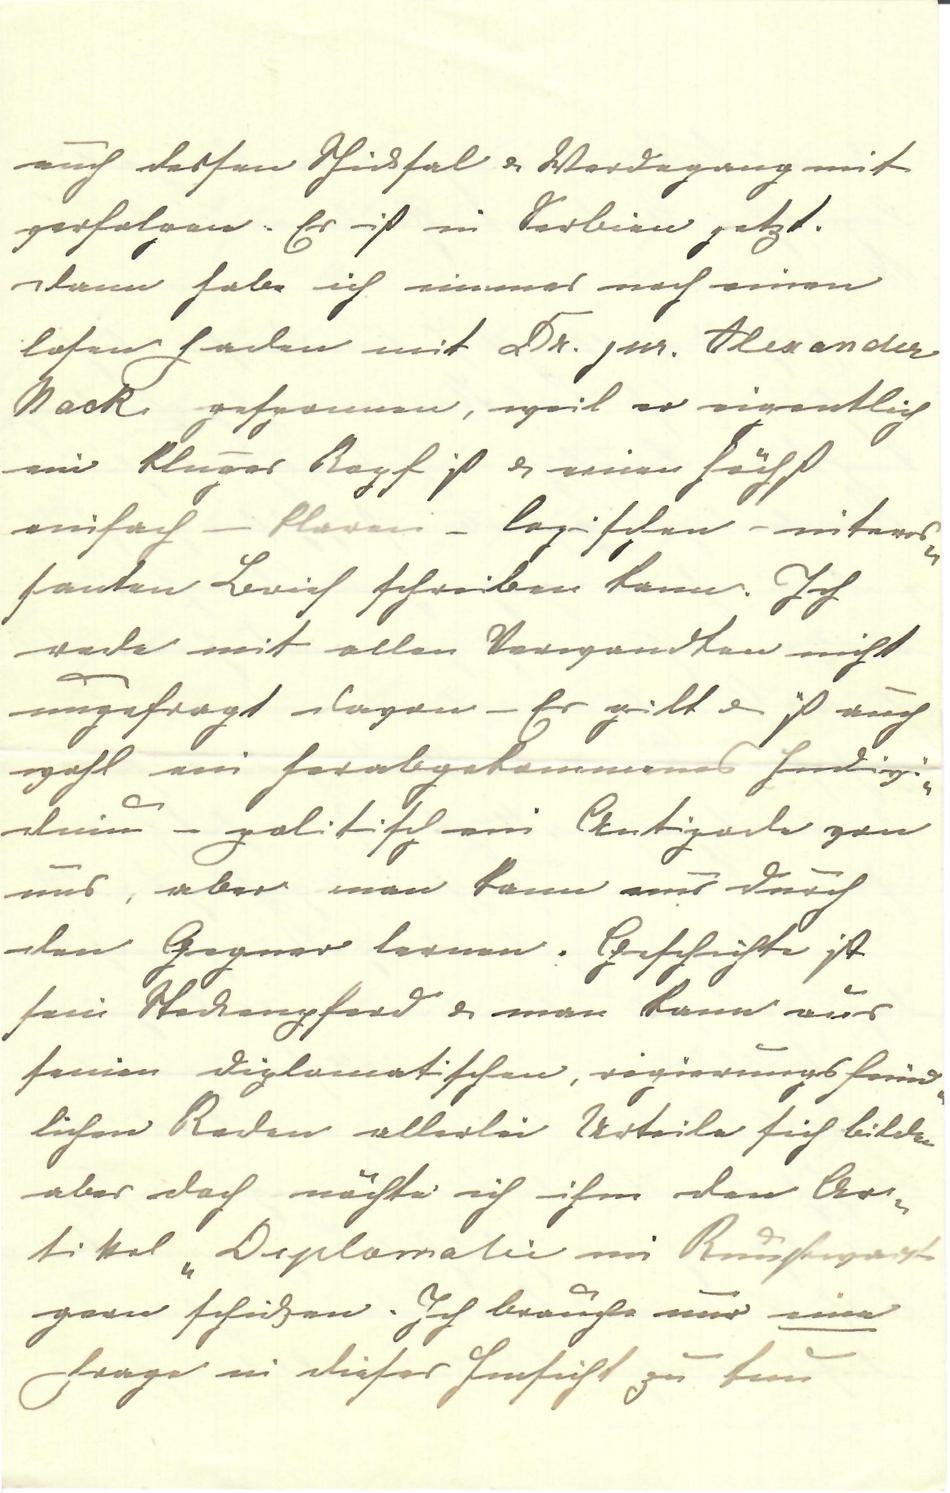 auch dessen Schicksal & Werdegang mit
verfolgen. Er ist in Serbien jetzt.
dann habe ich immer noch einen
losen Faden mit Dr. jur. Alexander
Nack gesponnen, weil er eigentlich
ein kluger Kopf ist & einen höchst
einfach – klaren – logischen – interes„
santen Brief schreiben kann. Ich
rede mit allen Verwandten nicht
ungefragt davon – Er gilt & ist auch
wohl ein herabgekommenes Indivi„
duum – politisch ein Antipode von
uns, aber man kann nur durch
den Gegner lernen. Geschichte ist
sein Steckenpferd & man kann aus
seinen diplomatischen, regierungsfeind„
lichen Reden allerlei Urteile sich bilden
aber doch möchte ich ihm den Ar„
tikel „Diplomatie im Kunstwart
gern schicken. Ich brauche nur eine
Frage in dieser Hinsicht zu tun